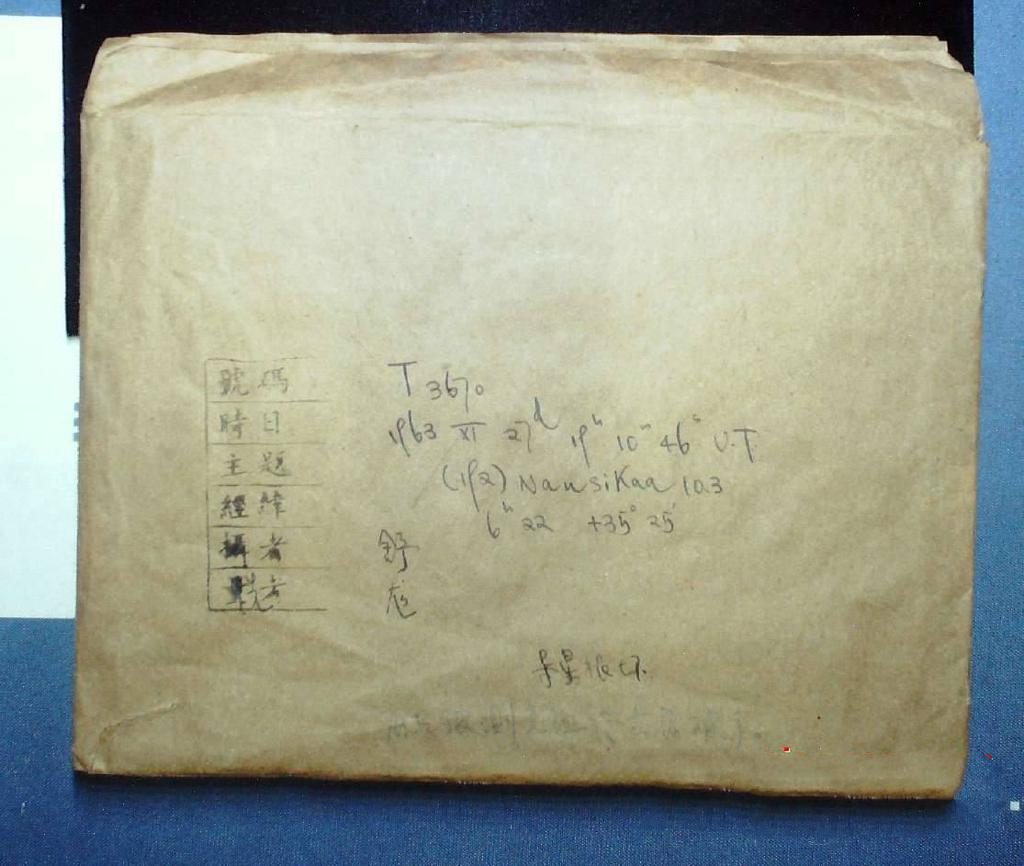 號碼 T 3670
時日 1963 XI 27ᵈ 19ʰ 10ᵐ 46ˢ U.T.
主題 (192) Nausikaa 10.3
經緯 6ʰ 22 +35° 25'
攝者 舒
龙
星很坏